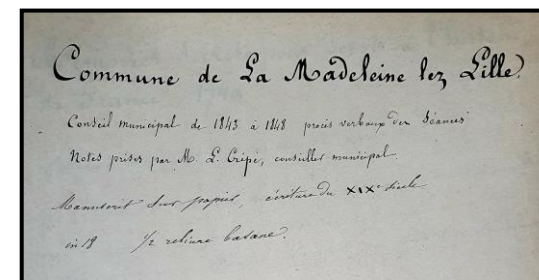 Commune de La Madeleine lez Lille.
Conseil municipal de 1843 à 1848 procès verbaux des Séances
Notes prises par M. L. Crépé, conseiller municipal.
Manuscrit sur papier, écriture du XIXe siècle
in 18 1/2 reliure basane.